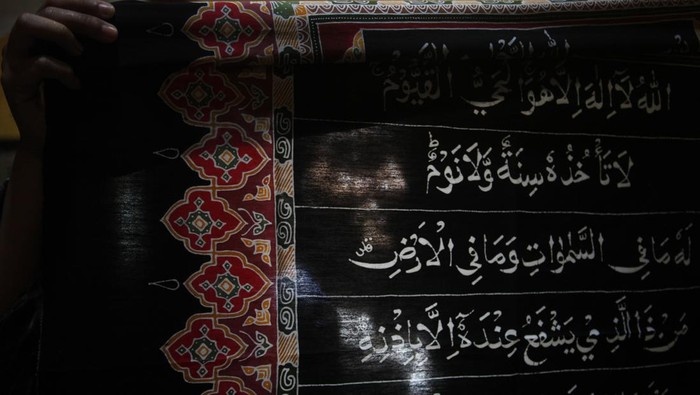 اللّٰهُ لَآ اِلٰهَ اِلَّا هُوَ الْحَيُّ الْقَيُّوْمُ
لَا تَأْخُذُهٗ سِنَةٌ وَّلَا نَوْمٌ
لَهٗ مَا فِى السَّمٰوٰتِ وَمَا فِى الْاَرْضِ
مَنْ ذَا الَّذِيْ يَشْفَعُ عِنْدَهٗٓ اِلَّا بِاِذْنِهٖ